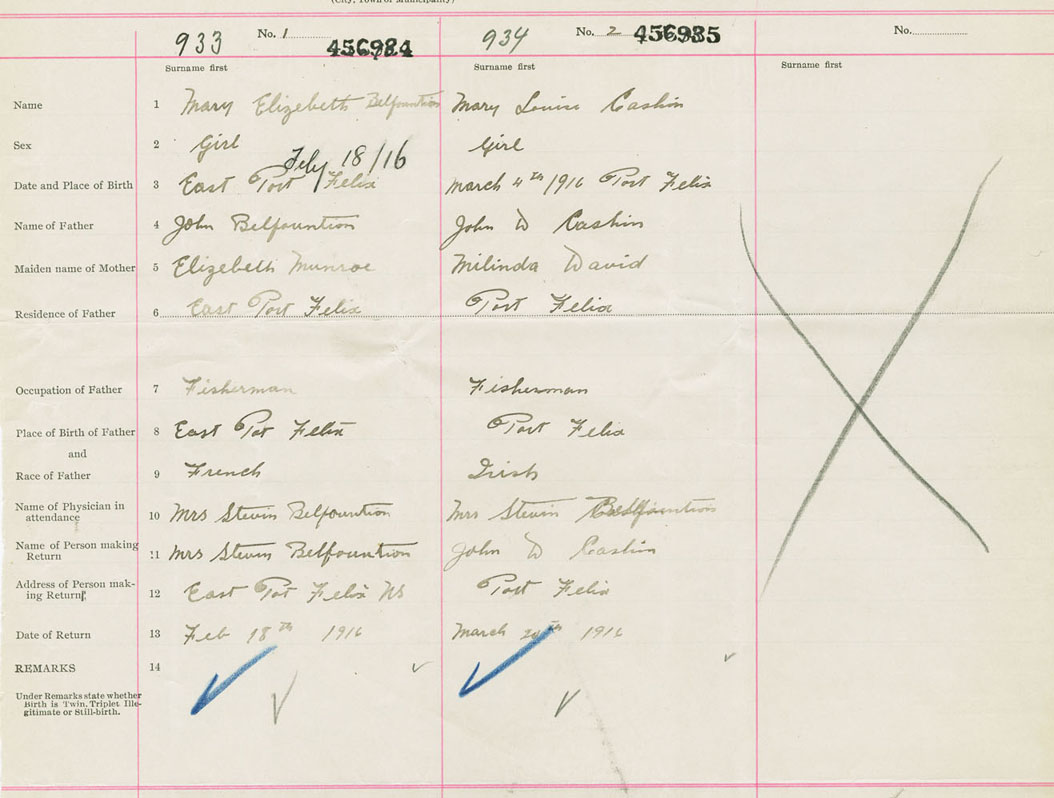 (City, Town or Municipality)
933 No. 1 456984 934 No. 2 456985 No.
Surname first Surname first Surname first
Name 1 Mary Elizabeth Belfountion Mary Louise Cashin
Sex 2 Girl Girl
Feby 18/16
Date and Place of Birth 3 East Port Felix March 4th/1916 Port Felix
Name of Father 4 John Belfountion John W Cashin
Maiden name of Mother 5 Elizebeth Munroe Milinda David
Residence of Father 6 East Port Felix Port Felix
Occupation of Father 7 Fisherman Fisherman
Place of Birth of Father 8 East Pot Felix Port Felix
and
Race of Father 9 French Irish
Name of Physician in
attendance 10 Mrs Stevin Belfountion Mrs Stevin Belfountion
Name of Person making
Return 11 Mrs Stevin Belfountion John W Cashin
Address of Person mak-
ing Return 12 East Pot Felix NS Port Felix
Date of Return 13 Feb 18th 1916 March 1916
REMARKS 14
Under Remarks state whether
Birth is Twin, Triplet, Ille-
gitimate or Still-birth.